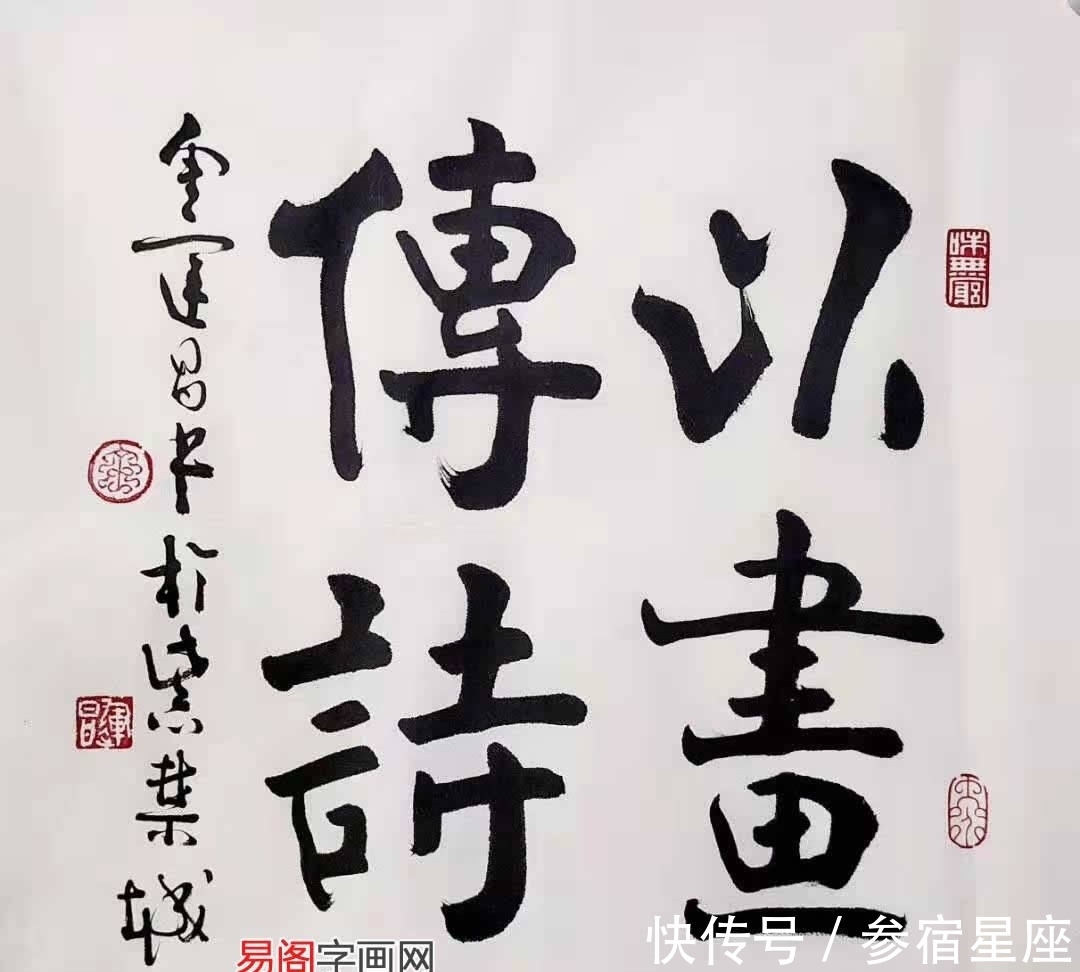 以畫
傳詩
金運昌書於紫禁城
運昌
易阁字画网
快传号 / 参宿星座